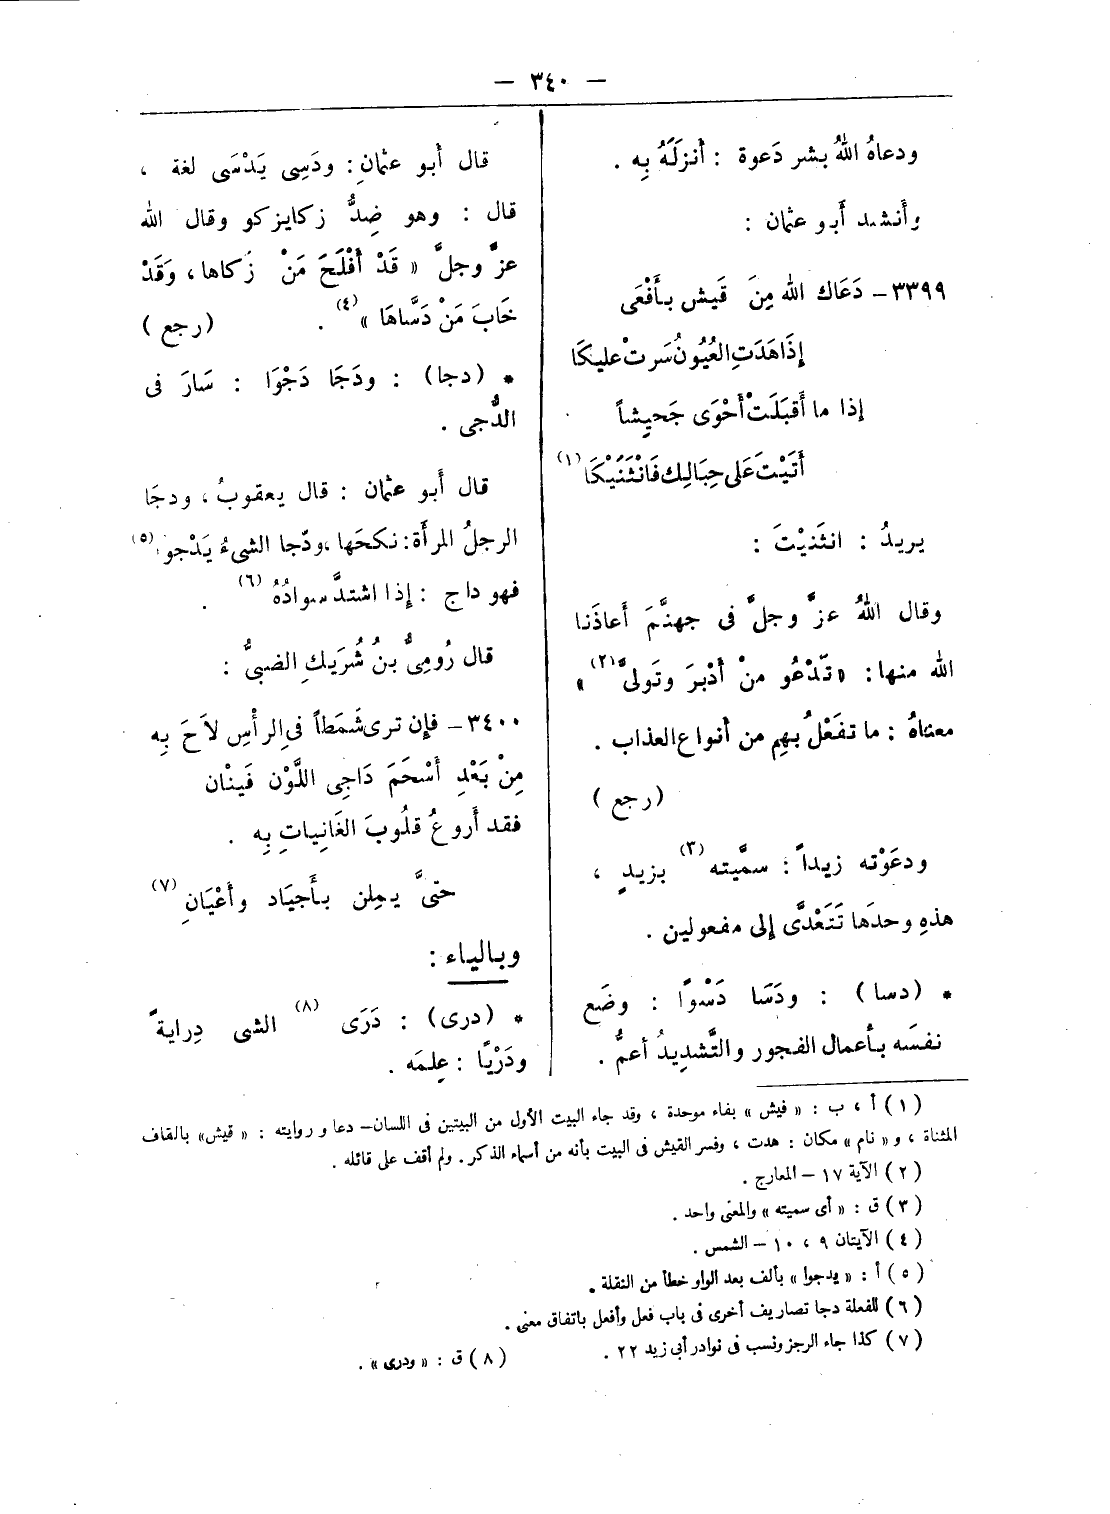 — ٣٤٠ —
ودعاهُ اللهُ بشر دَعوة : أنزلَهُ بِه .
وأنشد أبو عثمان :
٣٣٩٩ – دَعَاك الله مِنَ قَيش بأَفْعَى
إذَا هَدَتِ العُيُونُ سَرتْ عليكَا
إذا ما أَقبَلَتْ أَحْوَى جَحيِشاً
أَتَيْتَ عَلى حِبَالِك فَانْثَنَيْكَا (١)
يريدُ : انثَنيْتَ :
وقال اللهُ عزَّ وجلَّ فى جهنَّمَ أَعاذَنا
الله منها: «تَدْعُو منْ أَدْبرَ وتَولىَّ (٢) »
معناهُ : ما تفَعْلُ بهِم من أنواع العذاب .
(رجع )
ودعَوْته زيداً : سمَّيته (٣) بزيدٍ ،
هذهِ وحدَها تَتَعْدَّى إلى مفعولين .
* (دسا) : ودَسَا دَسْوًا : وضَع
نفسَه بأعمال الفجور والتَّشديدُ أعمُّ .
قال أبو عثمانِ : ودَسِى يَدْسَى لغة ،
قال : وهو ضِدُّ زكايزكو وقال الله
عزَّ وجلَّ « قَدْ أَفْلَحَ مَنْ زَكاها ، وَقَدْ
خَابَ مَنْ دَسَّاهَا » (٤) . (رجع )
* (دجا) : ودَجَا دَجْوَا : سَارَ فى
الدُّجى .
قال أَبو عثمان : قال يعقوبُ ، ودجَا
الرجلُ المرأَة : نكحَها ، ودَجا الشىءُ يَدْجو (٥)
فهو داج : إذا اشتدَّ سوادُهُ (٦) .
قال رُومِىُّ بنُ شُرَيكِ الضبىُّ :
٣٤٠٠ – فإِن ترى شَمَطاً فىِ الرأْسِ لاَحَ بِه
مِنْ بَعْدِ أَسْحَمَ دَاجِى اللَّوْن فَينْان
فقد أَروعُ قلُوبَ الغَانِياتِ بِه .
حتىَّ يمِلن بأَجيَاد وأعْيَانِ (٧)
وبالياء :
* (درى) : دَرَى (٨) الشى دِرايةً
ودَرْيًا : عِلمَه .
(١) أ ، ب : « فيش » بفاء موحدة ، وقد جاء البيت الأول من البيتين فى اللسان – دعا و روايته : « قيش» بالقاف
المثناة ، و « نام » مكان : هدت ، وفسر القيش فى البيت بأنه من أسماء الذكر . ولم أقف على قائله .
(٢) الآية ١٧ – المعارج .
(٣) ق : « أى سميته » والمعنى واحد .
(٤) الآيتان ٩ ، ١٠ – الشمس .
(٥) أ : « يدجوا » بألف بعد الواو خطأ من النقلة .
(٦) للفعلة دجا تصاريف أخرى فى باب فعل وأفعل باتفاق معنى .
(٧) كذا جاء الرجز ونسب فى نوادر أبى زيد ٢٢ . (٨) ق : « ودرى » .